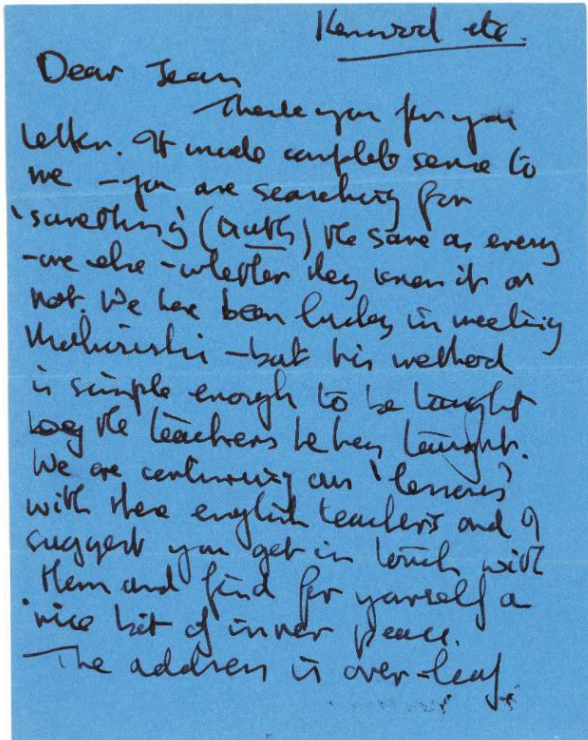 Kenwood etc.
Dear Jean
Thank you for you
letter. It made complete sense to
me - you are searching for
'something' (truth) the same as every
-one else - whether they know it or
not. We have been lucky in meeting
Maharishi - but his method
is simple enough to be taught
by the teachers he has taught.
We are continuing our 'lessons'
with these english teachers and I
suggest you get in touch with
them and find for yourself a
nice bit of inner peace.
The address is over-leaf.